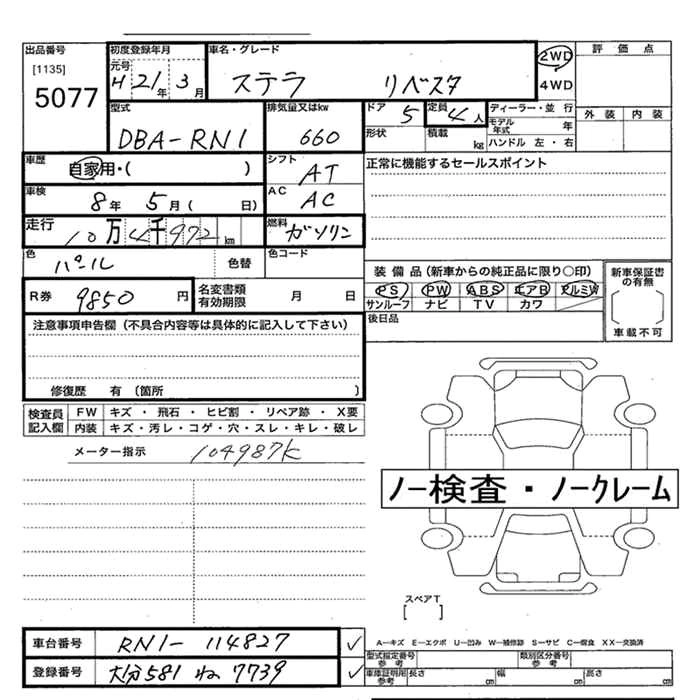 出品番号 初度登録年月 車名・グレード 評価点
[1135] 元号 H 21年 3月 ステラ リベスタ 2WD
5077 4WD
型式 排気量又はkw ドア 5 定員 4人 ディーラー・並行 外装 内装
DBA-RN1 660 形状 積載 kg モデル年式 年
ハンドル 左・右
車歴 自家用・( ) シフト AT 正常に機能するセールスポイント
車検 8年 5月( 日) AC AC
走行 10万4千972km 燃料 ガソリン
色 パール 色替 色コード
装備品(新車からの純正品に限り○印) 新車保証書の有無
R券 9850円 名変書類有効期限 月 日 PS PW ABS エアB アルミW
サンルーフ ナビ TV カワ
注意事項申告欄(不具合内容等は具体的に記入して下さい) 後日品 車載不可
修復歴 有(箇所 )
検査員記入欄 FW キズ・飛石・ヒビ割・リペア跡・X要
内装 キズ・汚レ・コゲ・穴・スレ・キレ・破レ
メーター指示 104987K
ノー検査・ノークレーム
スペアT
[ ]
車台番号 RN1-114827 ✓ A-キズ E-エクボ U-凹み W-補修跡 S-サビ C-腐食 XX-交換済
型式指定番号 参考 類別区分番号 参考
登録番号 大分581 ね 7739 ✓ 車庫証明用 参考 長さ cm 幅 cm 高さ cm